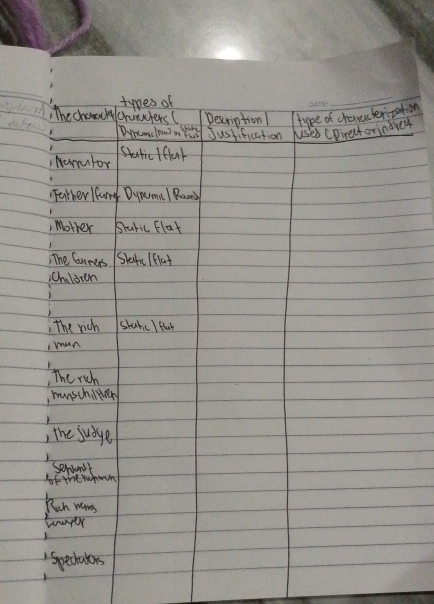 types of
The character characters ( Description/ type of characterization
Dynamic/Round or Static Flat Justification used (Direct or Indirect
DATE:
Narrator Static/flat
Father/farmer Dynamic/Round
Mother Static Flat
The farmers Static/flat
children
The rich Static/flat
man
The rich
mens children
The judge
Servant
of the rich man
Rich mens
lawyer
Spectators